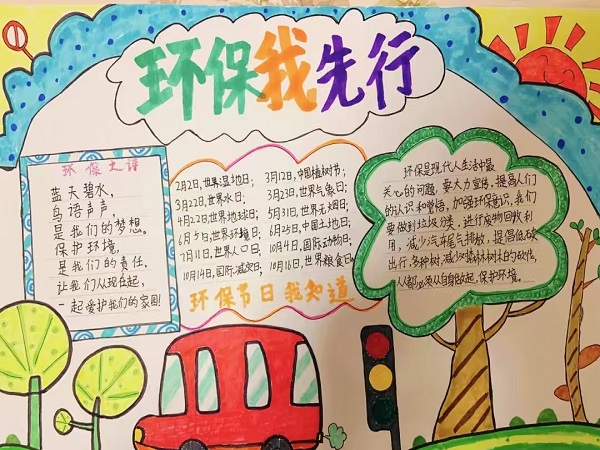 环保我先行
环保之诗
蓝天碧水,
鸟语声声,
是我们的梦想。
保护环境,
是我们的责任,
让我们从现在起,
一起爱护我们的家园
2月2日,世界湿地日;
3月22日,世界水日;
4月22日,世界地球日;
6月5日,世界环境日;
7月11日,世界人口日;
10月14日,国际减灾日;
3月12日,中国植树节;
3月23日,世界气象日;
5月31日,世界无烟日;
6月25日,中国土地日;
10月4日,国际动物日;
10月16日,世界粮食日。
环保节日我知道
环保是现代人生活中最
关心的问题,要大力宣传,提高人们
的认识和警悟,加强环保意识,我们
要做到垃圾分类,进行废物回收利
用,减少汽车尾气排放,提倡低碳
出行,多种树,减少对森林树林的砍伐,
人人都必须从自身做起,保护环境。